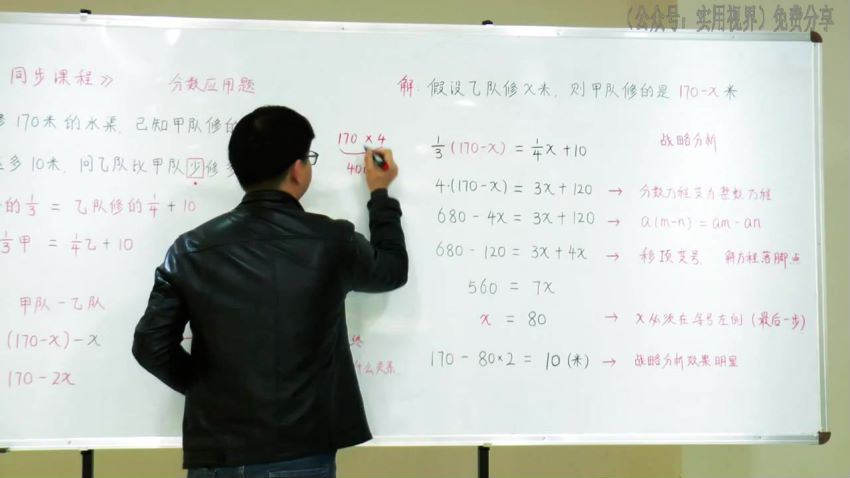 （公众号：实用视界）免费分享
同步课程》 分数应用题
170米的水渠，已知甲队修的
多10米，问乙队比甲队少修多
的1/3 = 乙队修的1/4 + 10
1/3甲 = 1/4乙 + 10
甲队 - 乙队
(170-x) - x
170 - 2x
170 × 4
什么关系.
解: 假设乙队修x米，则甲队修的是 170-x 米
1/3(170-x) = 1/4x + 10 战略分析
4·(170-x) = 3x + 120 → 分数方程变为整数方程
680 - 4x = 3x + 120 → a(m-n) = am - an
680 - 120 = 3x + 4x → 移项变号， 解方程落脚点
560 = 7x
x = 80 → x必须在等号左侧 (最后一步)
170 - 80×2 = 10 (米) → 战略分析效果明显